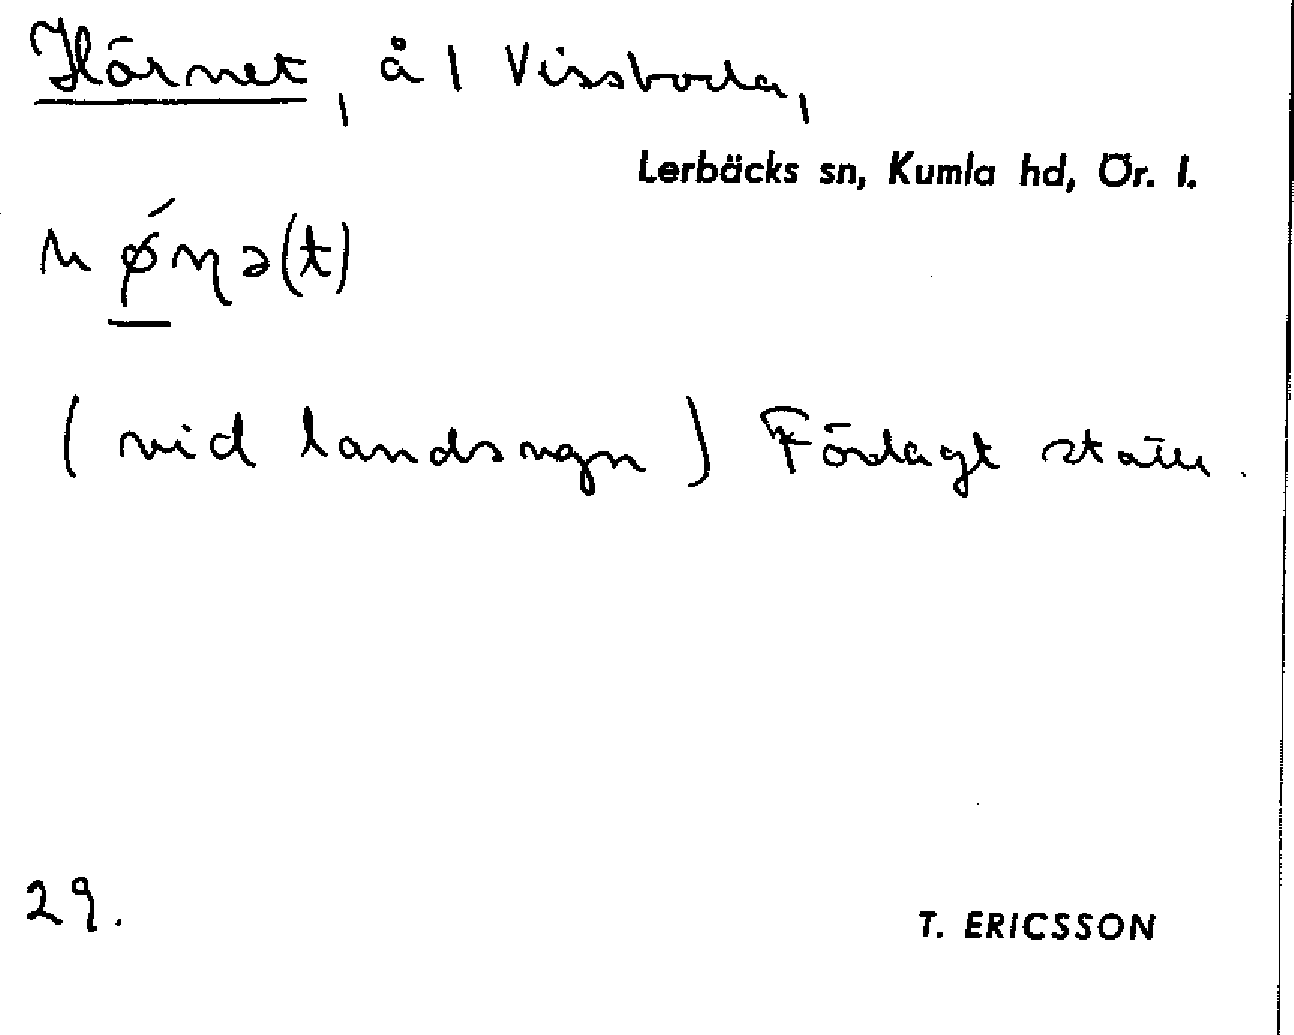 Hörnet, å 1 Vissboda,
Lerbäcks sn, Kumla hd, Ör. l.
hǿɳə(t)
(vid landsvgn) Förlagt ställe.
29.
T. ERICSSON